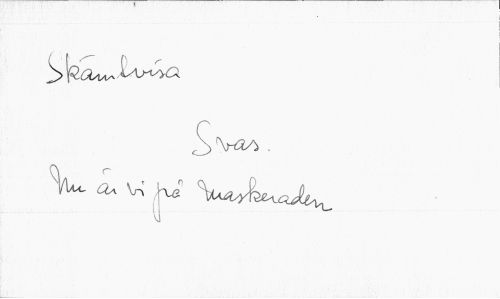 Skämtvisa
Svas.
Nu är vi på maskeraden